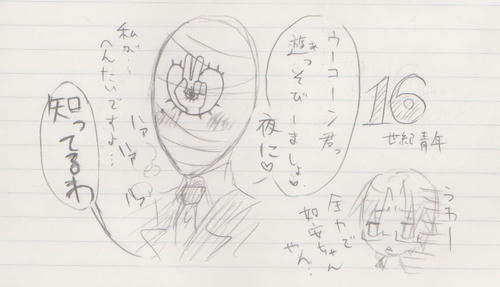 16
世紀青年
ウーコーン君っ
遊あっそびーましょ♡
夜に♡
私が…
へんたいですよ…
ハァ
ハァ
知ってるわ
うわー
全力で
如安ちゃん
やん。